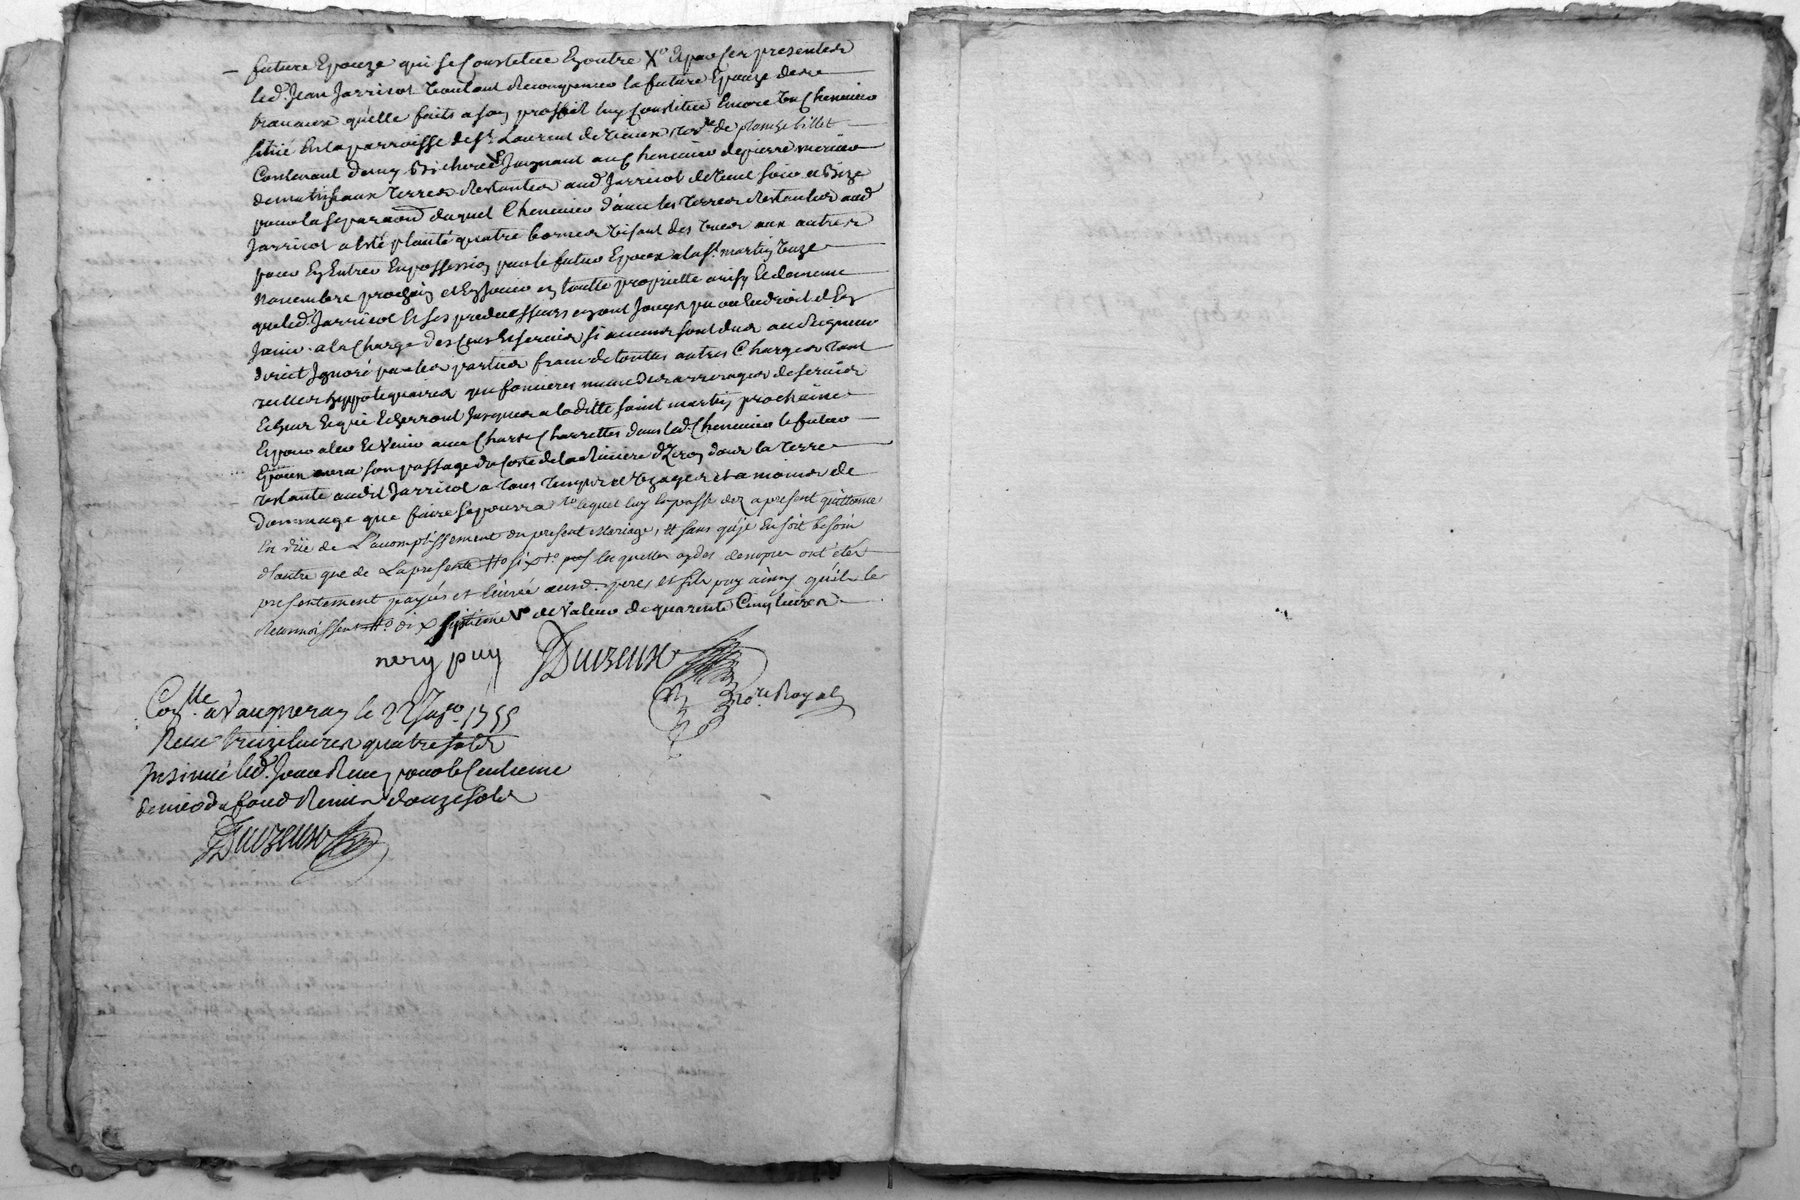 future Epouze qui se Constitue Enoutre Xo Et par ces presentes
led. Jean Jarricot Voulant Recompenser la future Epouze de ses
travaux qu'elle faits a son proffit luy Constitue Encore Un Chenevier
situé En la parroisse de St. Laurent de Vaux de planche billet
Contenant demy Bicherée Joignant au Chenevier de pierre
de matin aux terres Restantes aud. Jarricot de Vent soir et Bize
pour la separaon duquel Chenevier d'avec les terres Restantes aud.
Jarricot a Esté planté quatre bornes Visant des Unes aux autres
pour En Entrer En possession par le futur Epoux a la St. martin Unze
Novembre prochain et En Jouir en toutte proprietté ainsy Et comme
que led. Jarricot Et ses predecesseurs en ont Jouy ou pu ou Eu droit d'En
Jouir. a la Charge des Cens Et servis si aucuns sont dus au seigneur
direct Ignoré par les parties franc de touttes autres Charges tant
hyppotequaires que foncieres même des arrerages de servis
Echeus Et qui Echerront Jusques a laditte saint martin prochaine
Et pour aler Et Venir avec Chars et Charrettes dans led. Chenevier le futur
Epoux aura son passage du Costé de la Riviere d'Izeron dans la terre
restante audit Jarricot a tous Usages et a moins de
dommage que faire se pourra lequel luy En passe dez a present quittance
En vüe de L'accomplissement du present Mariage, Et sans qu'il En soit besoin
d'autre que de La presente lesquelles ont étés
presentement payés et livrés auxd. pere et fils puy ainsy qu'ils le
Reconnoissent di X septieme de Valeur de quarante Cinq livres
nery puy Duvzeuxe
Nore. Royal
Conlle. a Vaugneray le 22 1755
Reçu treize livres quatre sols
Insinué led. Jour Reçu pour le Centieme
denier du fond Reuni douze sols
Duvzeuxe